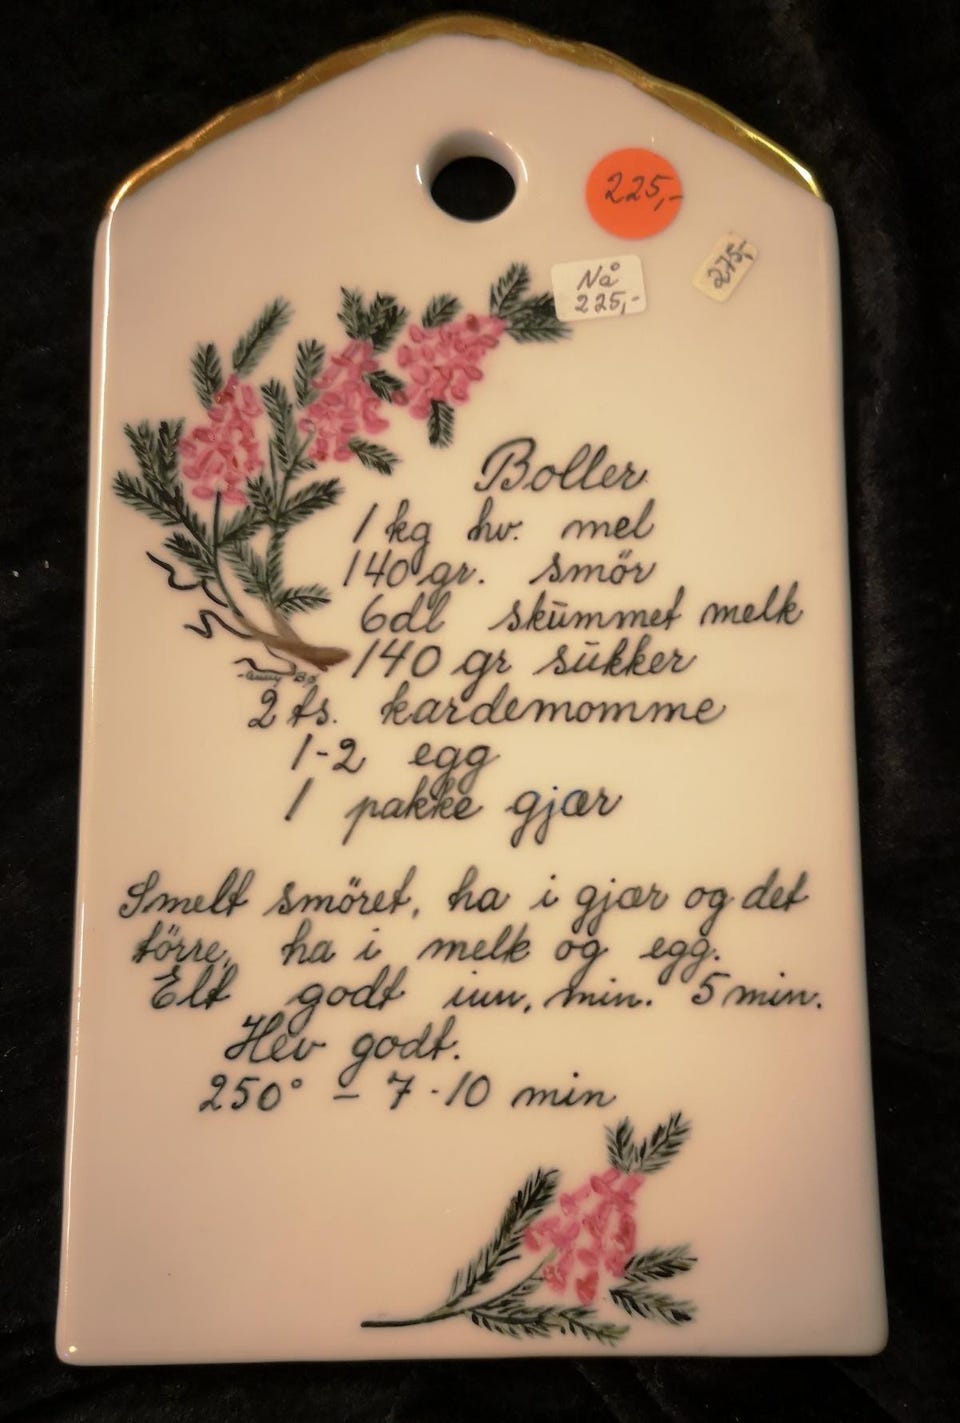 225,-
275,-
Nå
225,-
Boller
1 kg hv. mel
140 gr. smör
6dl skūmmet melk
140 gr sūkker
2 ts. kardemomme
1-2 egg
1 pakke gjær
Smelt smöret, ha i gjær og det
törre, ha i melk og egg.
Elt godt inn, min. 5 min.
Hev godt.
250° – 7-10 min